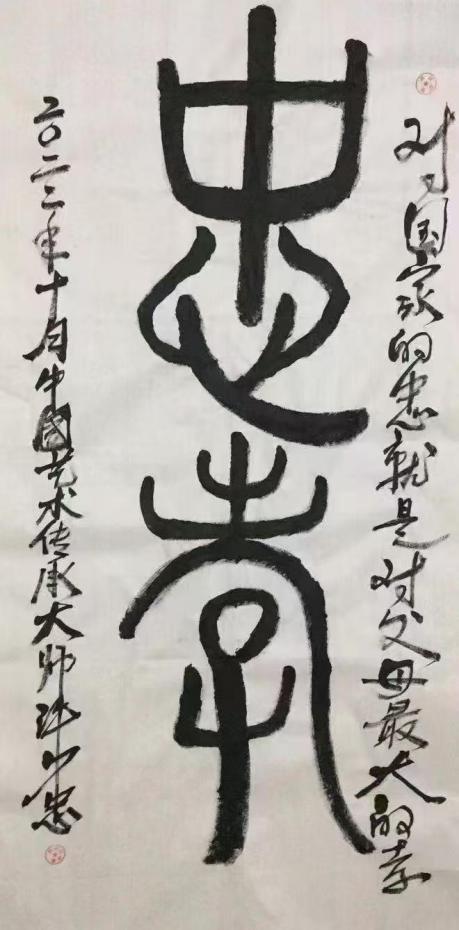 对于国家的忠就是对父母最大的孝
忠孝
二〇二二年十月中国艺术传承大师忠